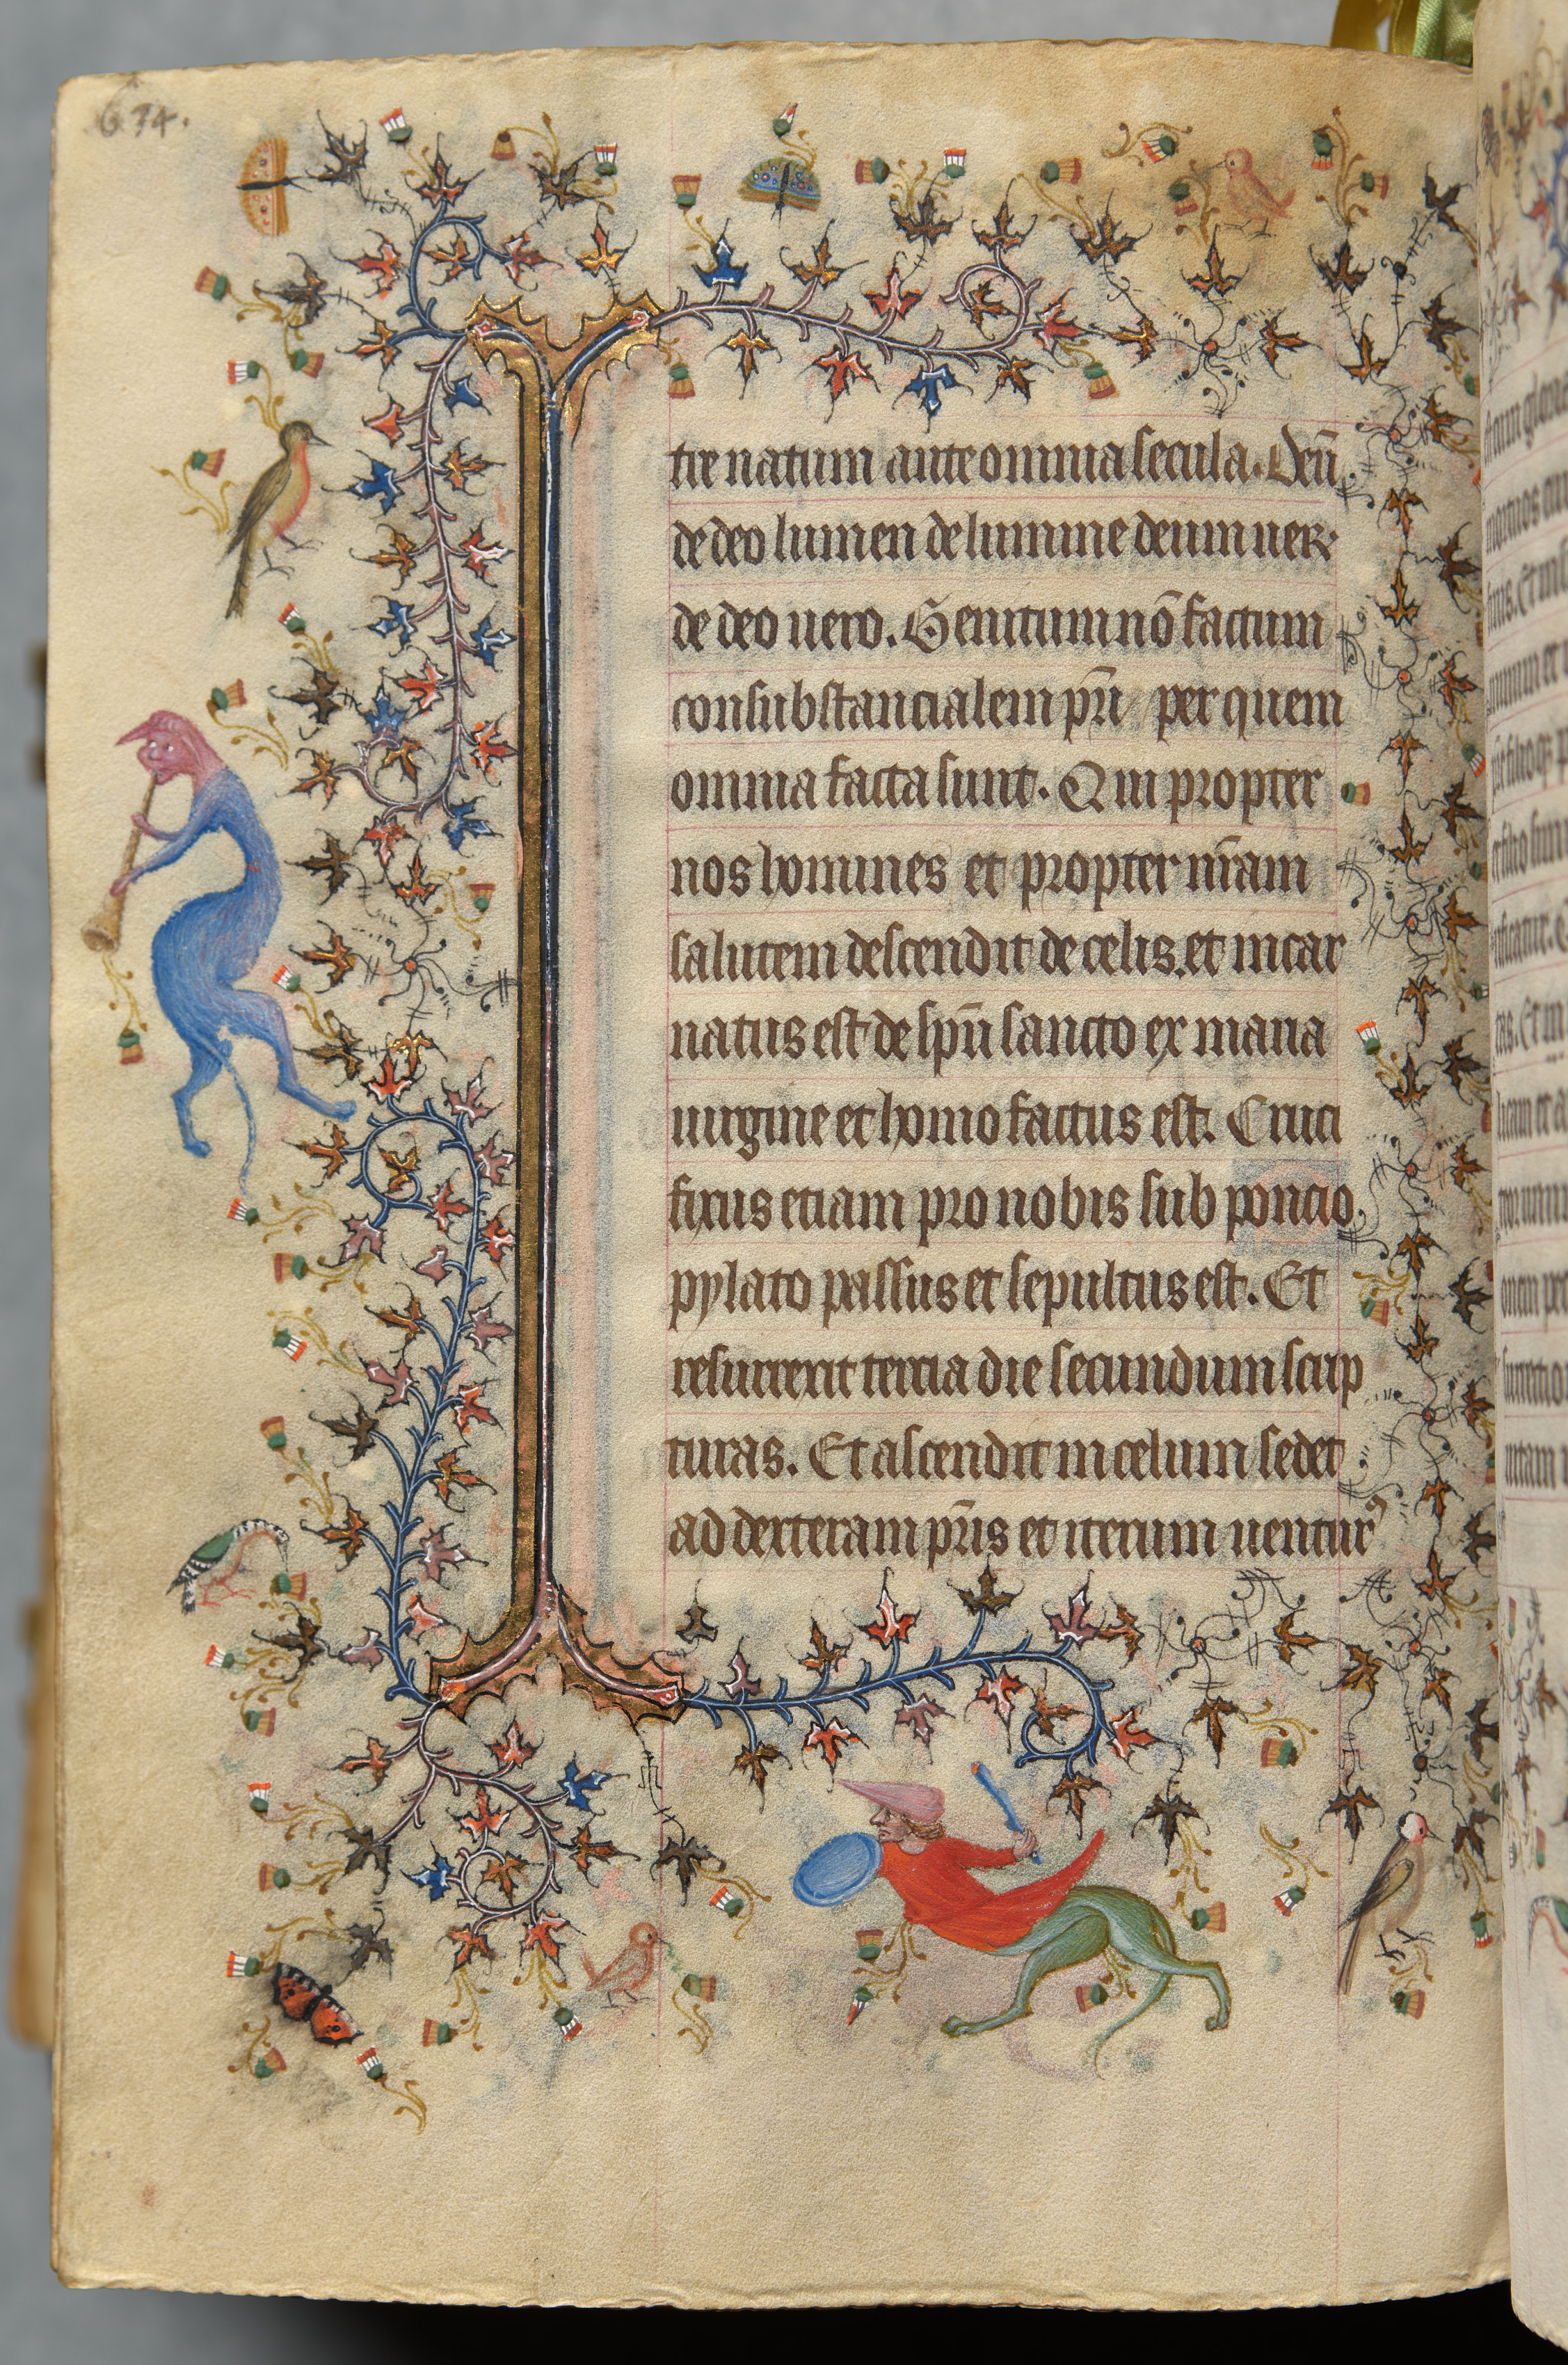 674.
tre natum ante omnia secula. Deū
de deo lumen de lumine deum uer
de deo uero. Genitum nō factum
consubstancialem pr̄i per quem
omnia facta sunt. Qui propter
nos homines et propter nr̄am
salutem descendit de celis. et incar
natus est de sp̄u sancto ex maria
uirgine et homo factus est. Cruci
fixus etiam pro nobis sub poncio
pylato passus et sepultus est. Et
resurrexit tercia die secundum scrip
turas. Et ascendit in celum sedet
ad dexteram pr̄is et iterum uenturꝰ